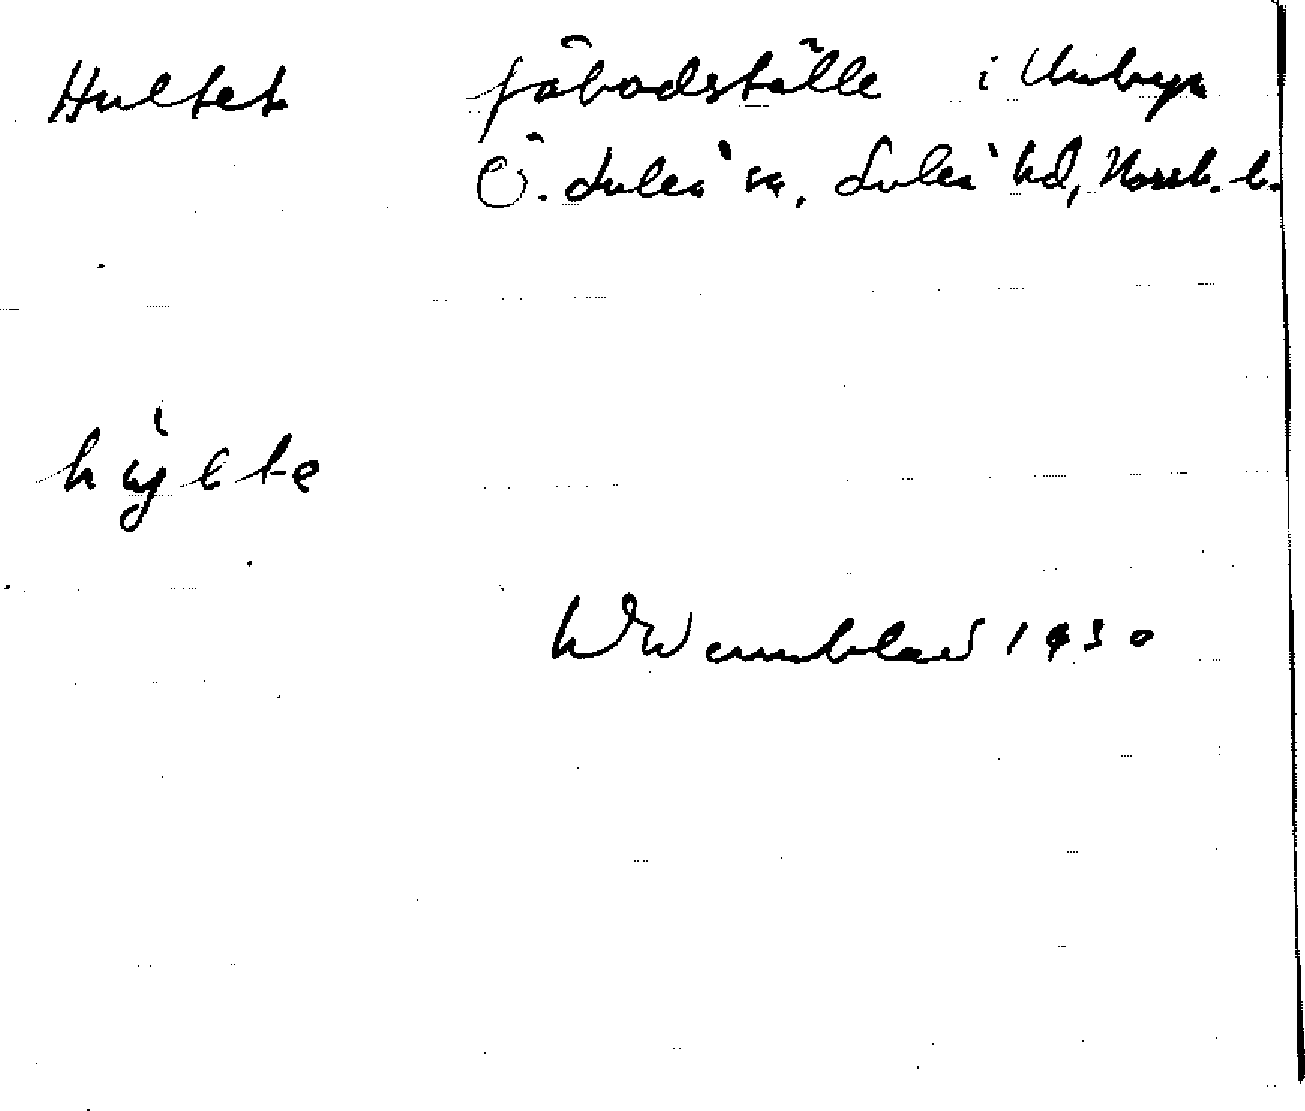 Hultet fäbodställe i Unbyn
Ö. Luleå sn, Luleå hd, Norrb. l.
hỳlte
W Wennblad 1930